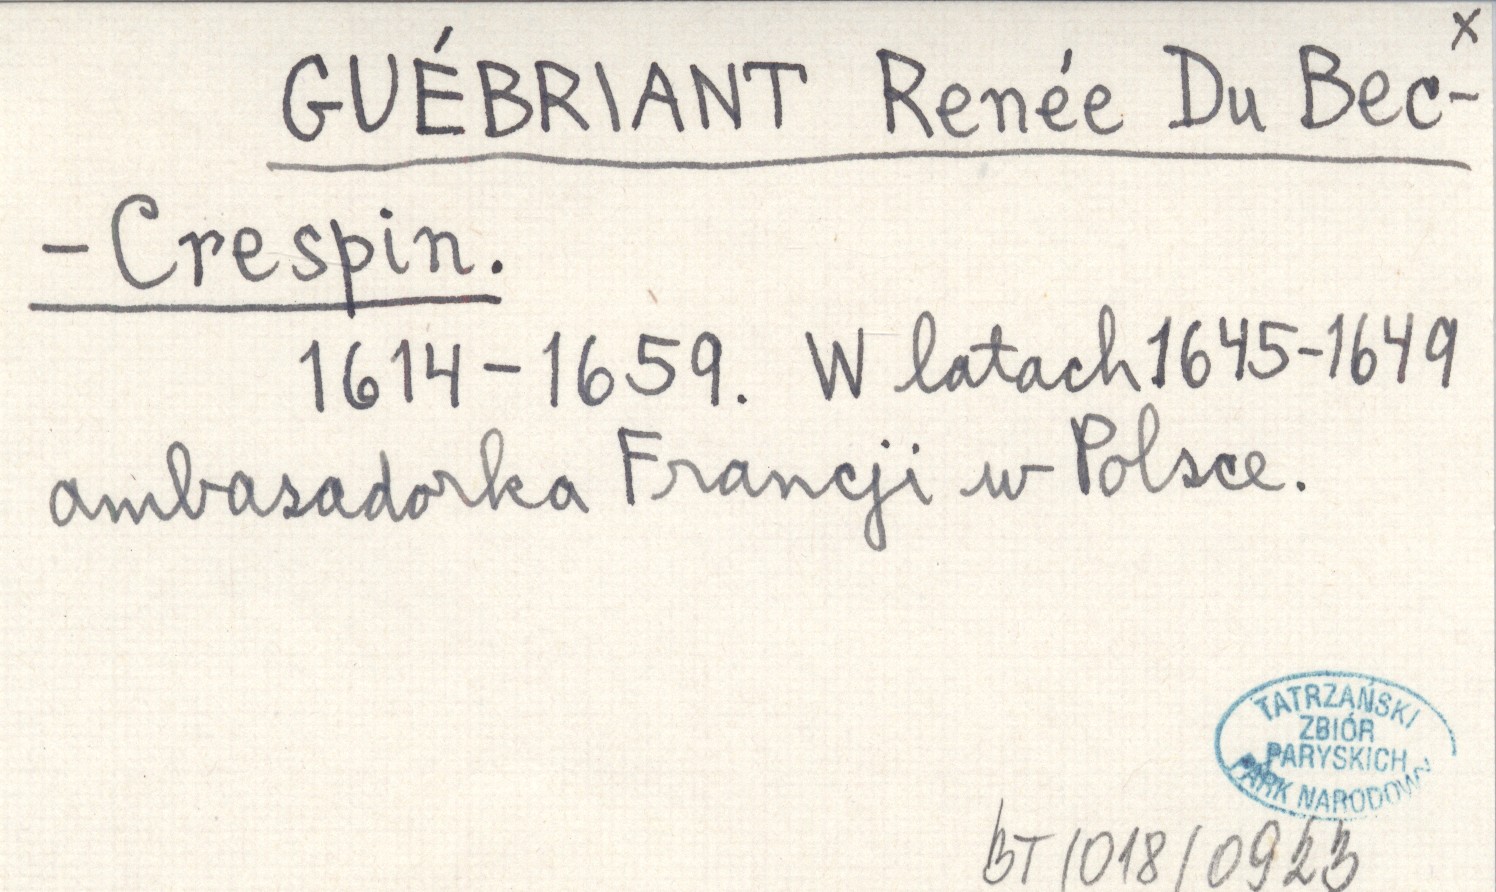 x
GUÉBRIANT Renée Du Bec-
-Crespin.
1614-1659. W latach 1645-1649
ambasadorka Francji w Polsce.
TATRZAŃSKI
ZBIÓR
PARYSKICH
PARK NARODOWY
BT/018/0923